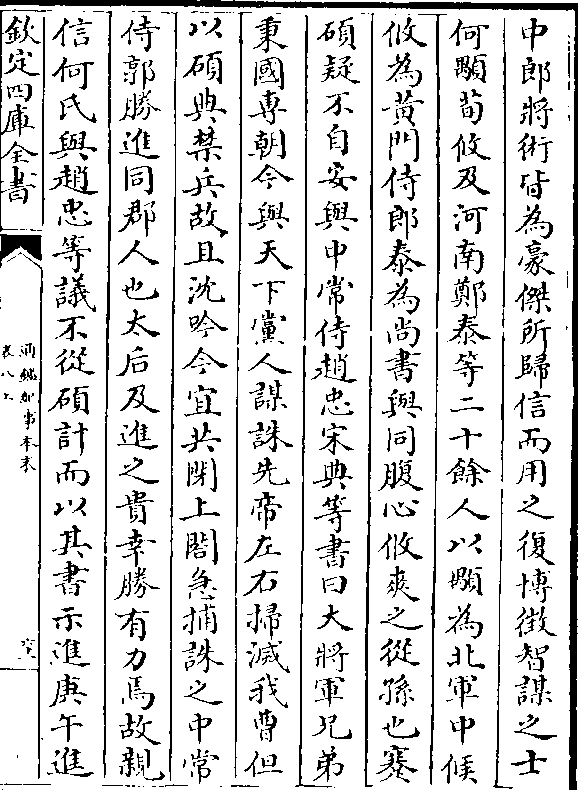 中郎將術皆為豪傑所歸信而用之復博徵智謀之士
何顒荀攸及河南鄭泰等二十餘人以顒為北軍中候
攸為黃門侍郎泰為尚書與同腹心攸爽之從孫也蹇
碩疑不自安與中常侍趙忠宋典等書曰大將軍兄弟
秉國專朝今與天下黨人謀誅先帝左右掃滅我曹但
以碩典禁兵故且沈吟今宜共閉上閤急捕誅之中常
侍郭勝進同郡人也太后及進之貴幸勝有力焉故親
信何氏與趙忠等議不從碩計而以其書示進庚午進
欽定四庫全書
通鑑紀事本末
卷八上